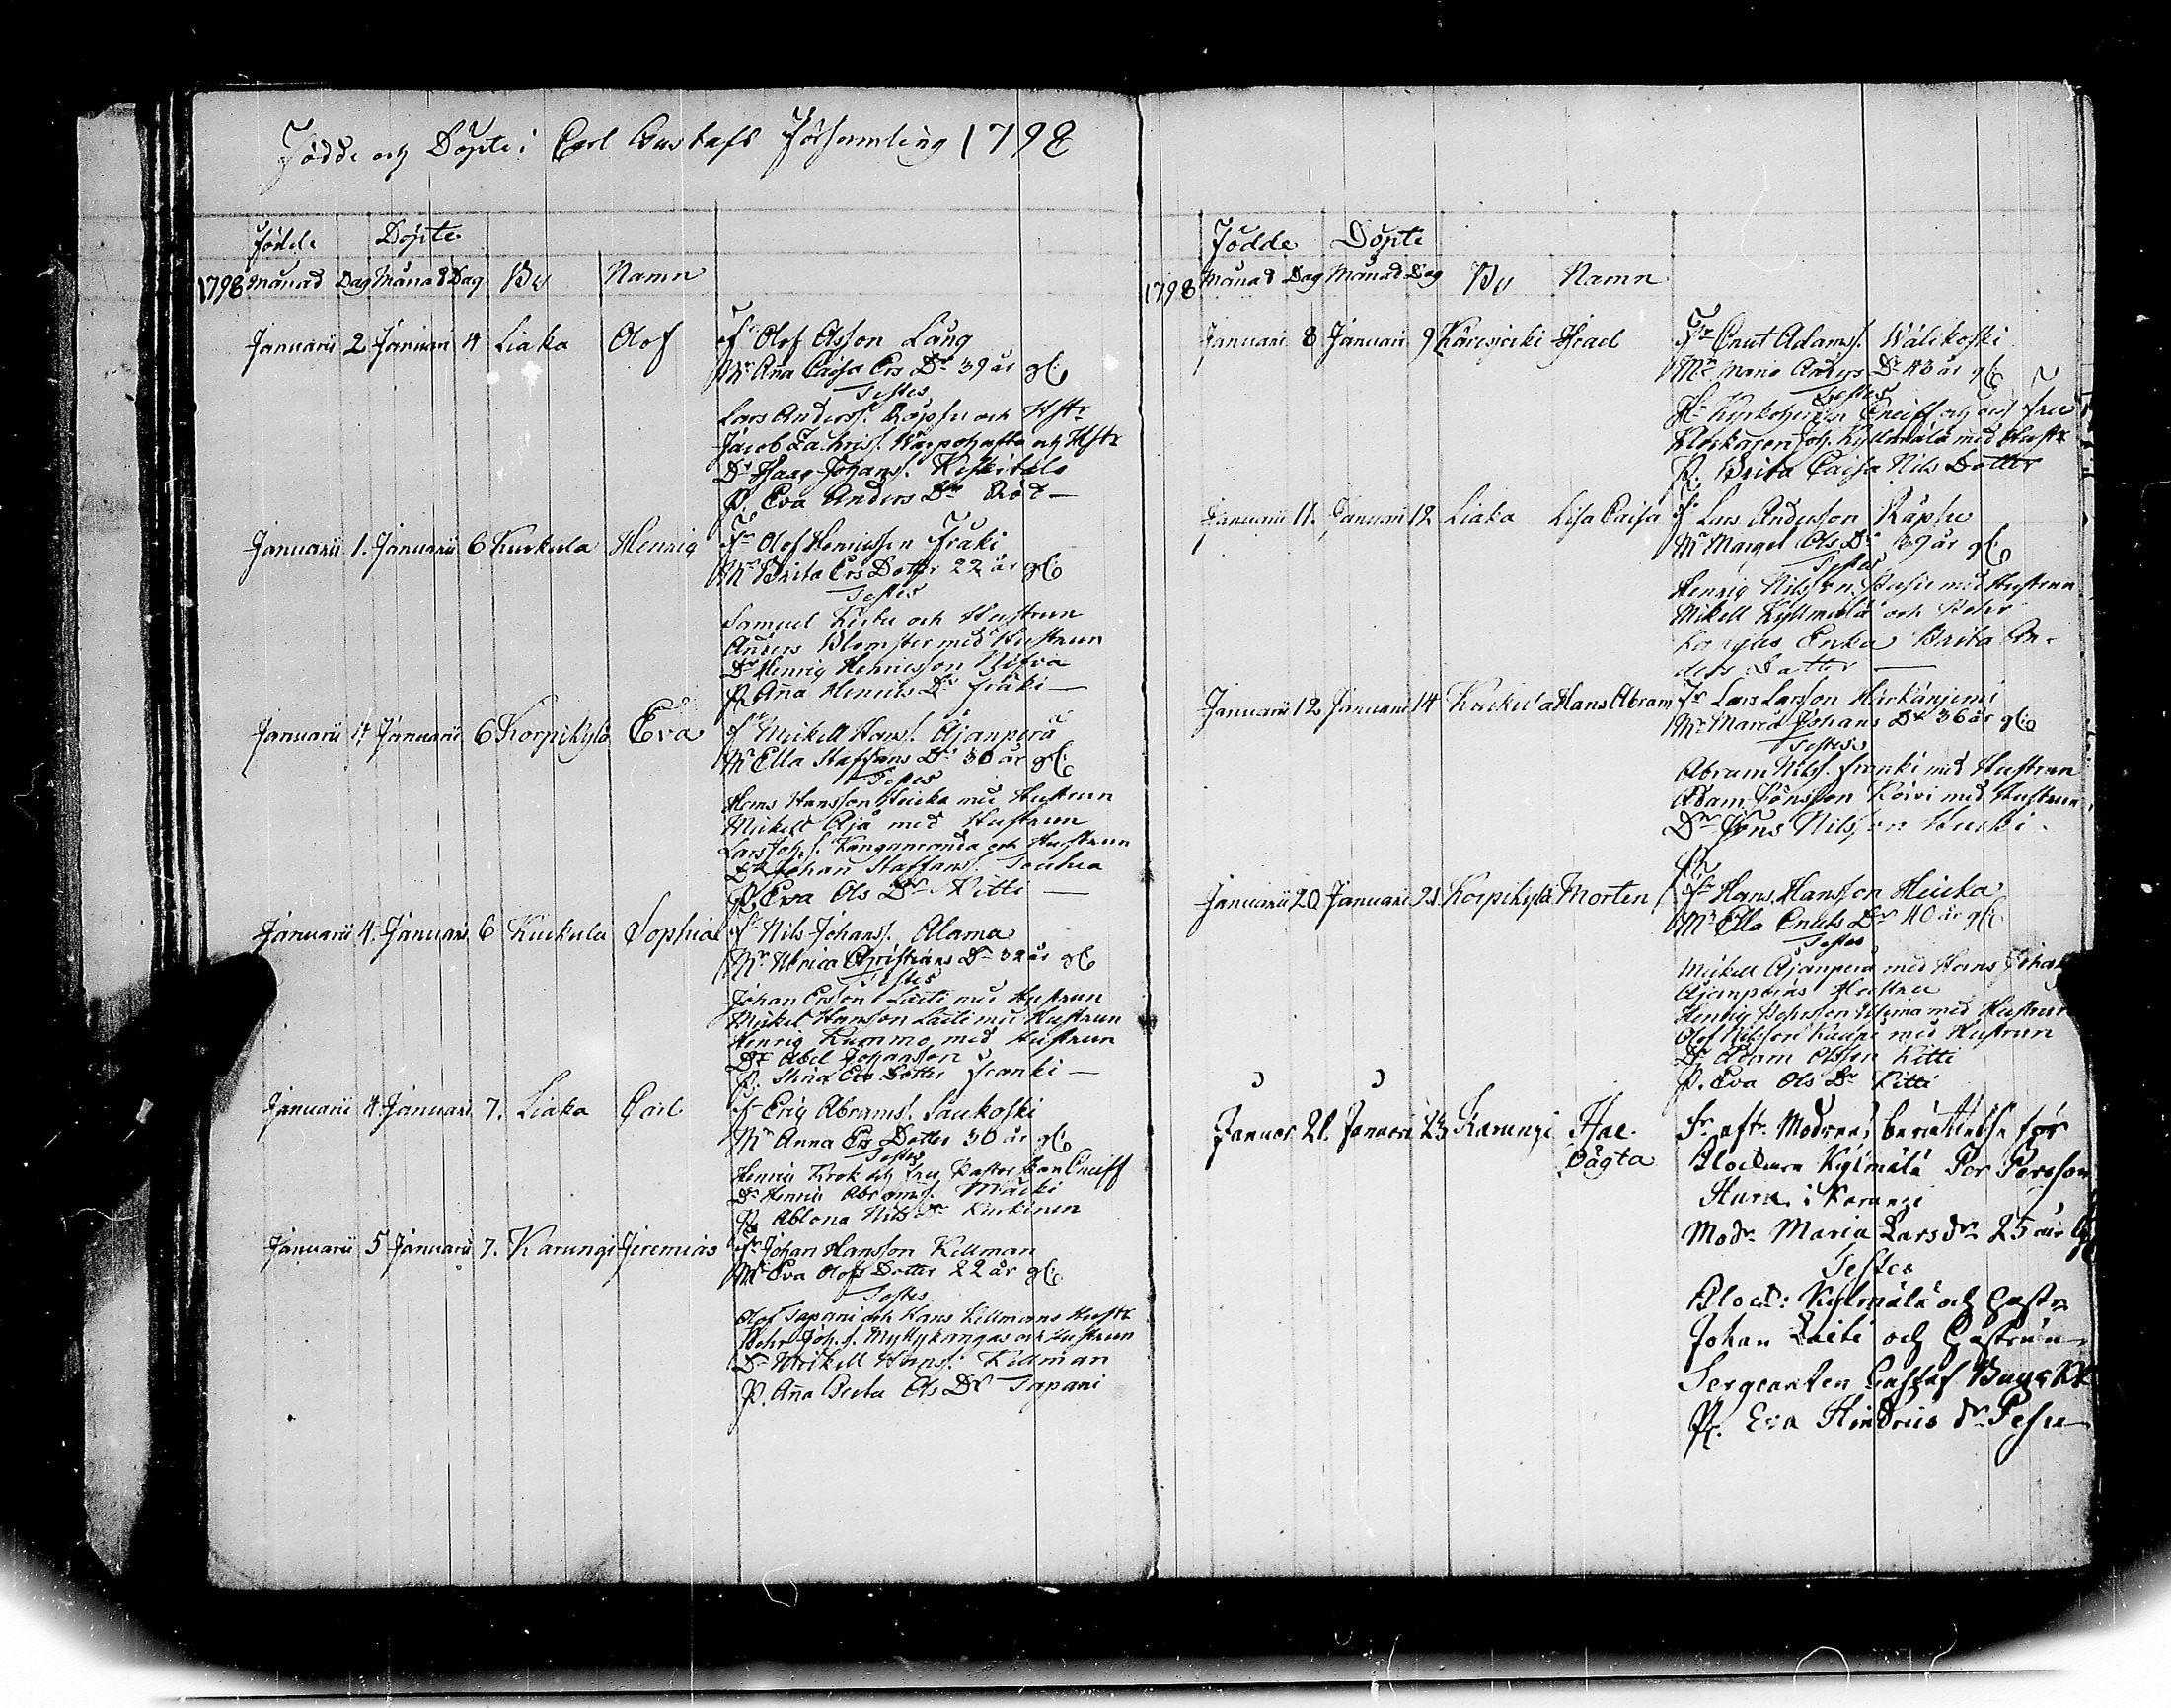 Födde och Döpte i Carl Gustafs Församling 1798
Födde Döpte
1798 Månad Dag Månad Dag By Namn
Januarii 2 Januari 4 Liaka Olof Fr Olof Olsson Lång
Mr Aña Caisa Ers Dr 39 år gl:
Testes
Lars Anderss. Räpsu och Hstr
Jacob Zachriss. och Hstr
Dr Isaac Johanss. Keskitalo
P. Eva Anders Dr
Januarii 1. Januarii 6 Kuckula Henrig Fr Olof Henricsson Fräki
Mr Brita Ers Dotter 22 år gl:
Testes
Samuel och Hustrun
Anders Blomster med Hustrun
Dr Henrig Henricsson
P. Aña Henrics Dr Fräki
Januarii 4 Januarii 6 Korpikylä Eva Fr Mickell Hanss. Äjänperä
Mr Ella Staffans Dr 30 år gl:
Testes
Hans Hansson Heicka med Hustrun
Mickell Äjä med Hustrun
Lars Johss. och Hustrun
Dr Johan Staffanss.
P. Eva Ols Dr Kitti
Januarii 4. Januari 6 Kuckula Sophia Fr Nils Johanss. Alama
Mr Ulrica Christians Dr 32 år gl:
Testes
Johan Ersson Laiti med Hustrun
Mickel Hansson Laiti med Hustrun
Henrig Kummo med Hustrun
Dr Abel Johansson
P. Stina Ers Dotter Franki
Januarii 4 Januari 7. Liaka Carl Fr Erig Abramss. Saukoski
Mr Anna Ers Dotter 30 år gl:
Testes
Henric Krok och Fru Pastorskan Cneiff
Dr Henric Abramss. Mäcki
P. Ablona Nils Dr
Januarii 5 Januarii 7. Karungi Jeremias Fr Johan Hansson Killman
Mr Eva Olofs Dotter 22 år gl:
Testes
Olof Tapani och Hans Killmans Hustr
Pehr Johss. Myllykangas och Hustrun
Dr Mickell Hanss. Killman
P. Aña Beata Ols Dr Tapani
Födde Döpte
1798 Månad Dag Månad Dag By Namn
Januarii 8 Januari 9 Israel Fr Cnut Adamss. Wälikoski
Mr Maria Anders Dr 43 år gl:
Testes
Hr Kyrkoherden Cneiff och dess Fru
Klockaren Joh. Kyllmälä med Hustr
P. Brita Caisa Nils Dotter
Januarii 11. Januari 12 Liaka Lisa Caisa Fr Lars Andersson Räpsu
Mr Marget Ols Dr 39 år gl:
Testes
Henrig Nilsson med Hustrun
Mickell Kyllmälä och Pehr
Enka Brita An-
ders Dotter
Januarii 12 Januari 14 Kuckula Hans Abram Fr Lars Larsson Härkäniemi
Mr Maria Johans Dr 36 år gl:
Testes
Abram Nilss. Franki med Hustrun
Adam Jönsson Koivi med Hustrun
Dr Jöns Nilsson Hucki
Januarii 20 Januari 21 Korpikylä Morten Fr Hans Hansson Heicka
Mr Ella Cnuts Dr 40 år gl:
Testes
Mickell Äjänperä med Hans Johan
Äjänperäs Hustru
Henrig Pehrsson med Hustrun
Olof Nilsson Kaupi med Hustrun
Dr Adam Olsson Kitti
P. Eva Ols Dr Kitti
Januar 21. Januari 23 Karungi Oägta Fr efter Modrens berättelse för
Klockaren Kylmälä Per Persson
i Karungi
Modr Maria Larsdr 25 år gl:
Testes
Klock: Kylmälä och Hustr
Johan Laiti och Hustrun
Sergeanten Gustaf
P. Eva Hindrics dr Pesu